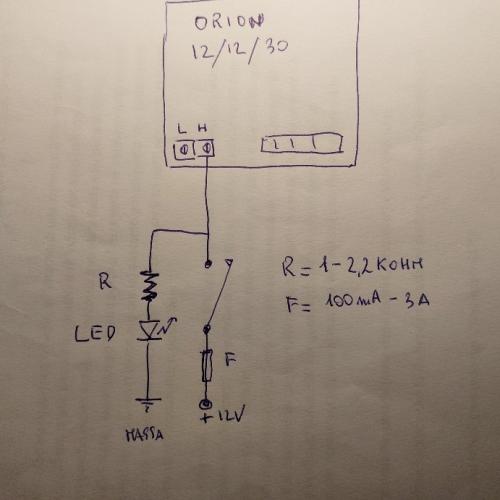 ORION
12/12/30
L H
R
R = 1 - 2,2 KOHM
F = 100 mA - 3A
LED
F
+ 12V
MASSA